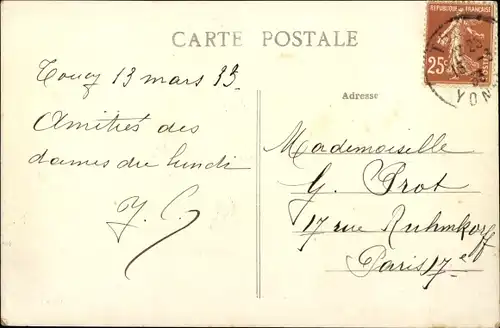 CARTE POSTALE
REPUBLIQUE FRANÇAISE
25c
POSTES
YONNE
Toucy 13 mars 33
Adresse
Amitiés des
dames du lundi
Y. C.
Mademoiselle
G. Prot
17 rue Ruhmkorff
Paris 17e